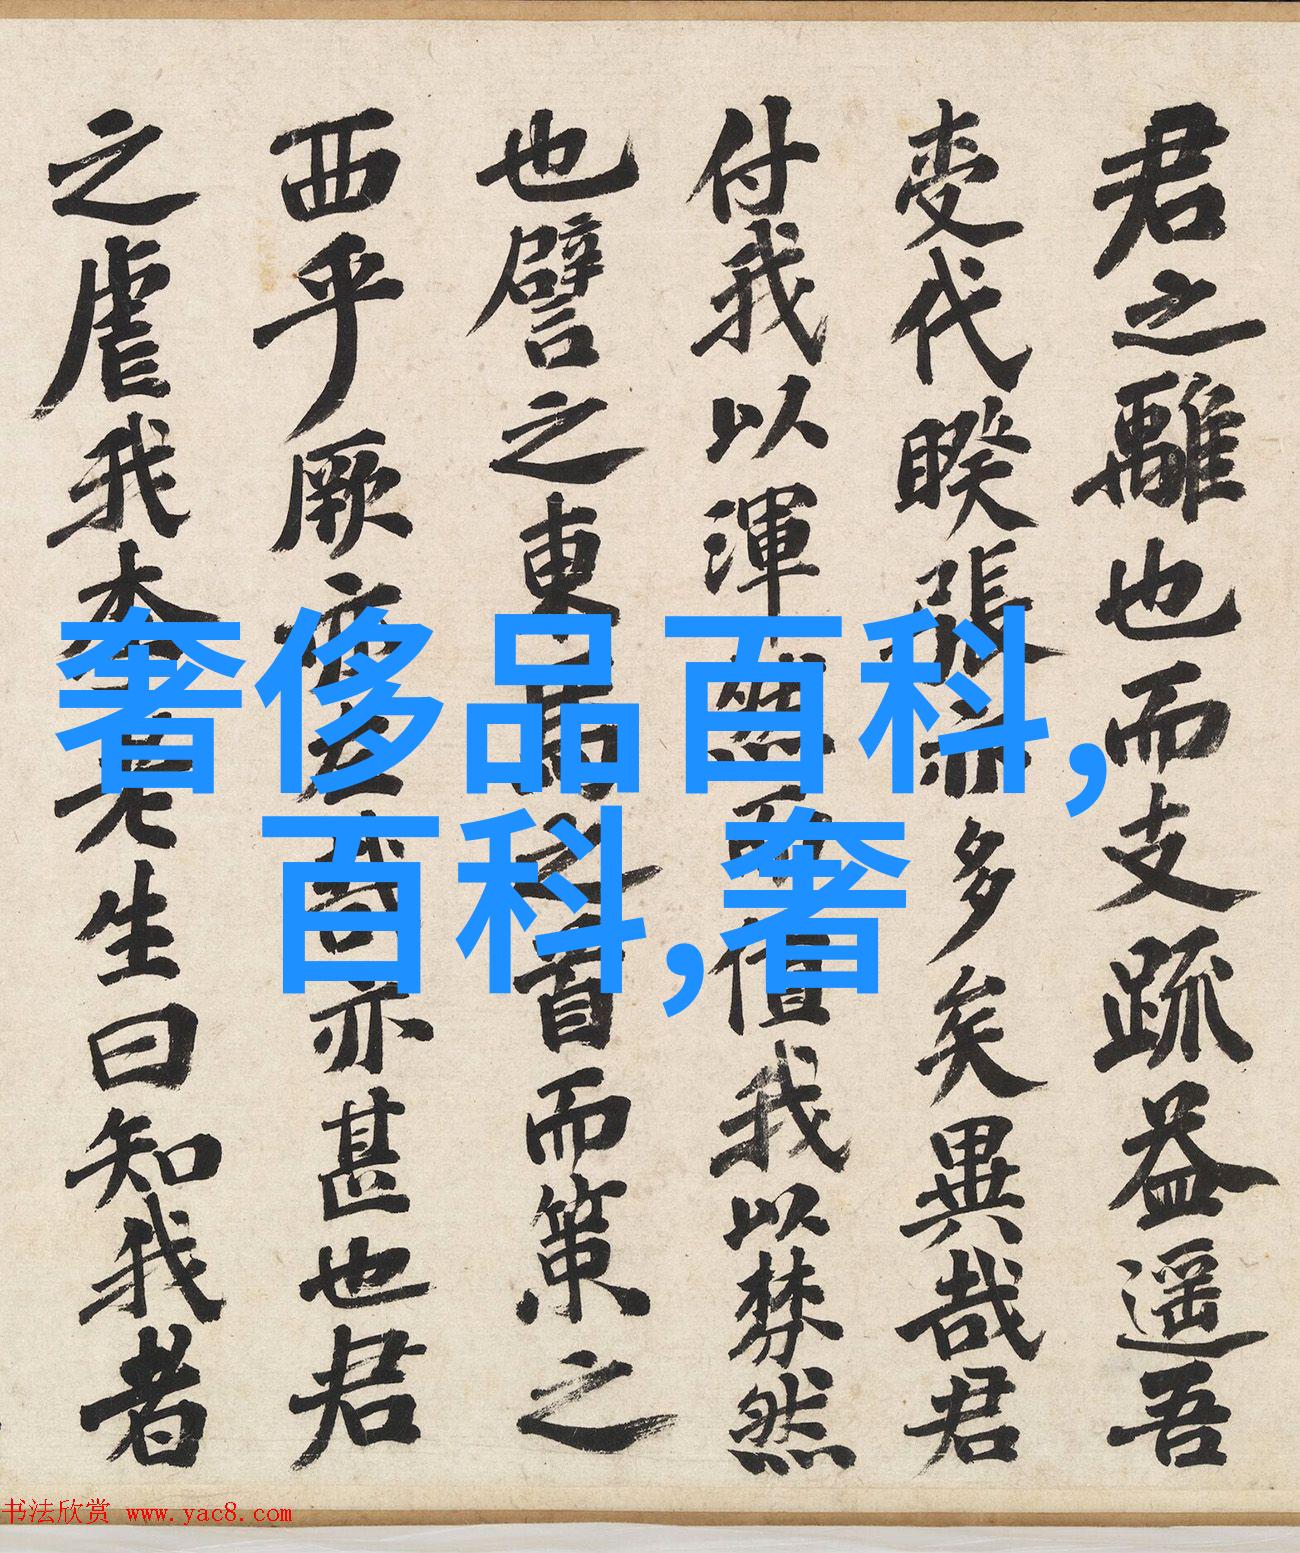 君之離也而支疏益遥吾
代睽張亦多矣異哉君
付我以渾然而值我以棼然
也譬之東馬之首而策之
西乎厥亦甚也君
之虐我生曰知我者
奢侈品百科,
百科,奢
书法欣赏 www.yac8.com